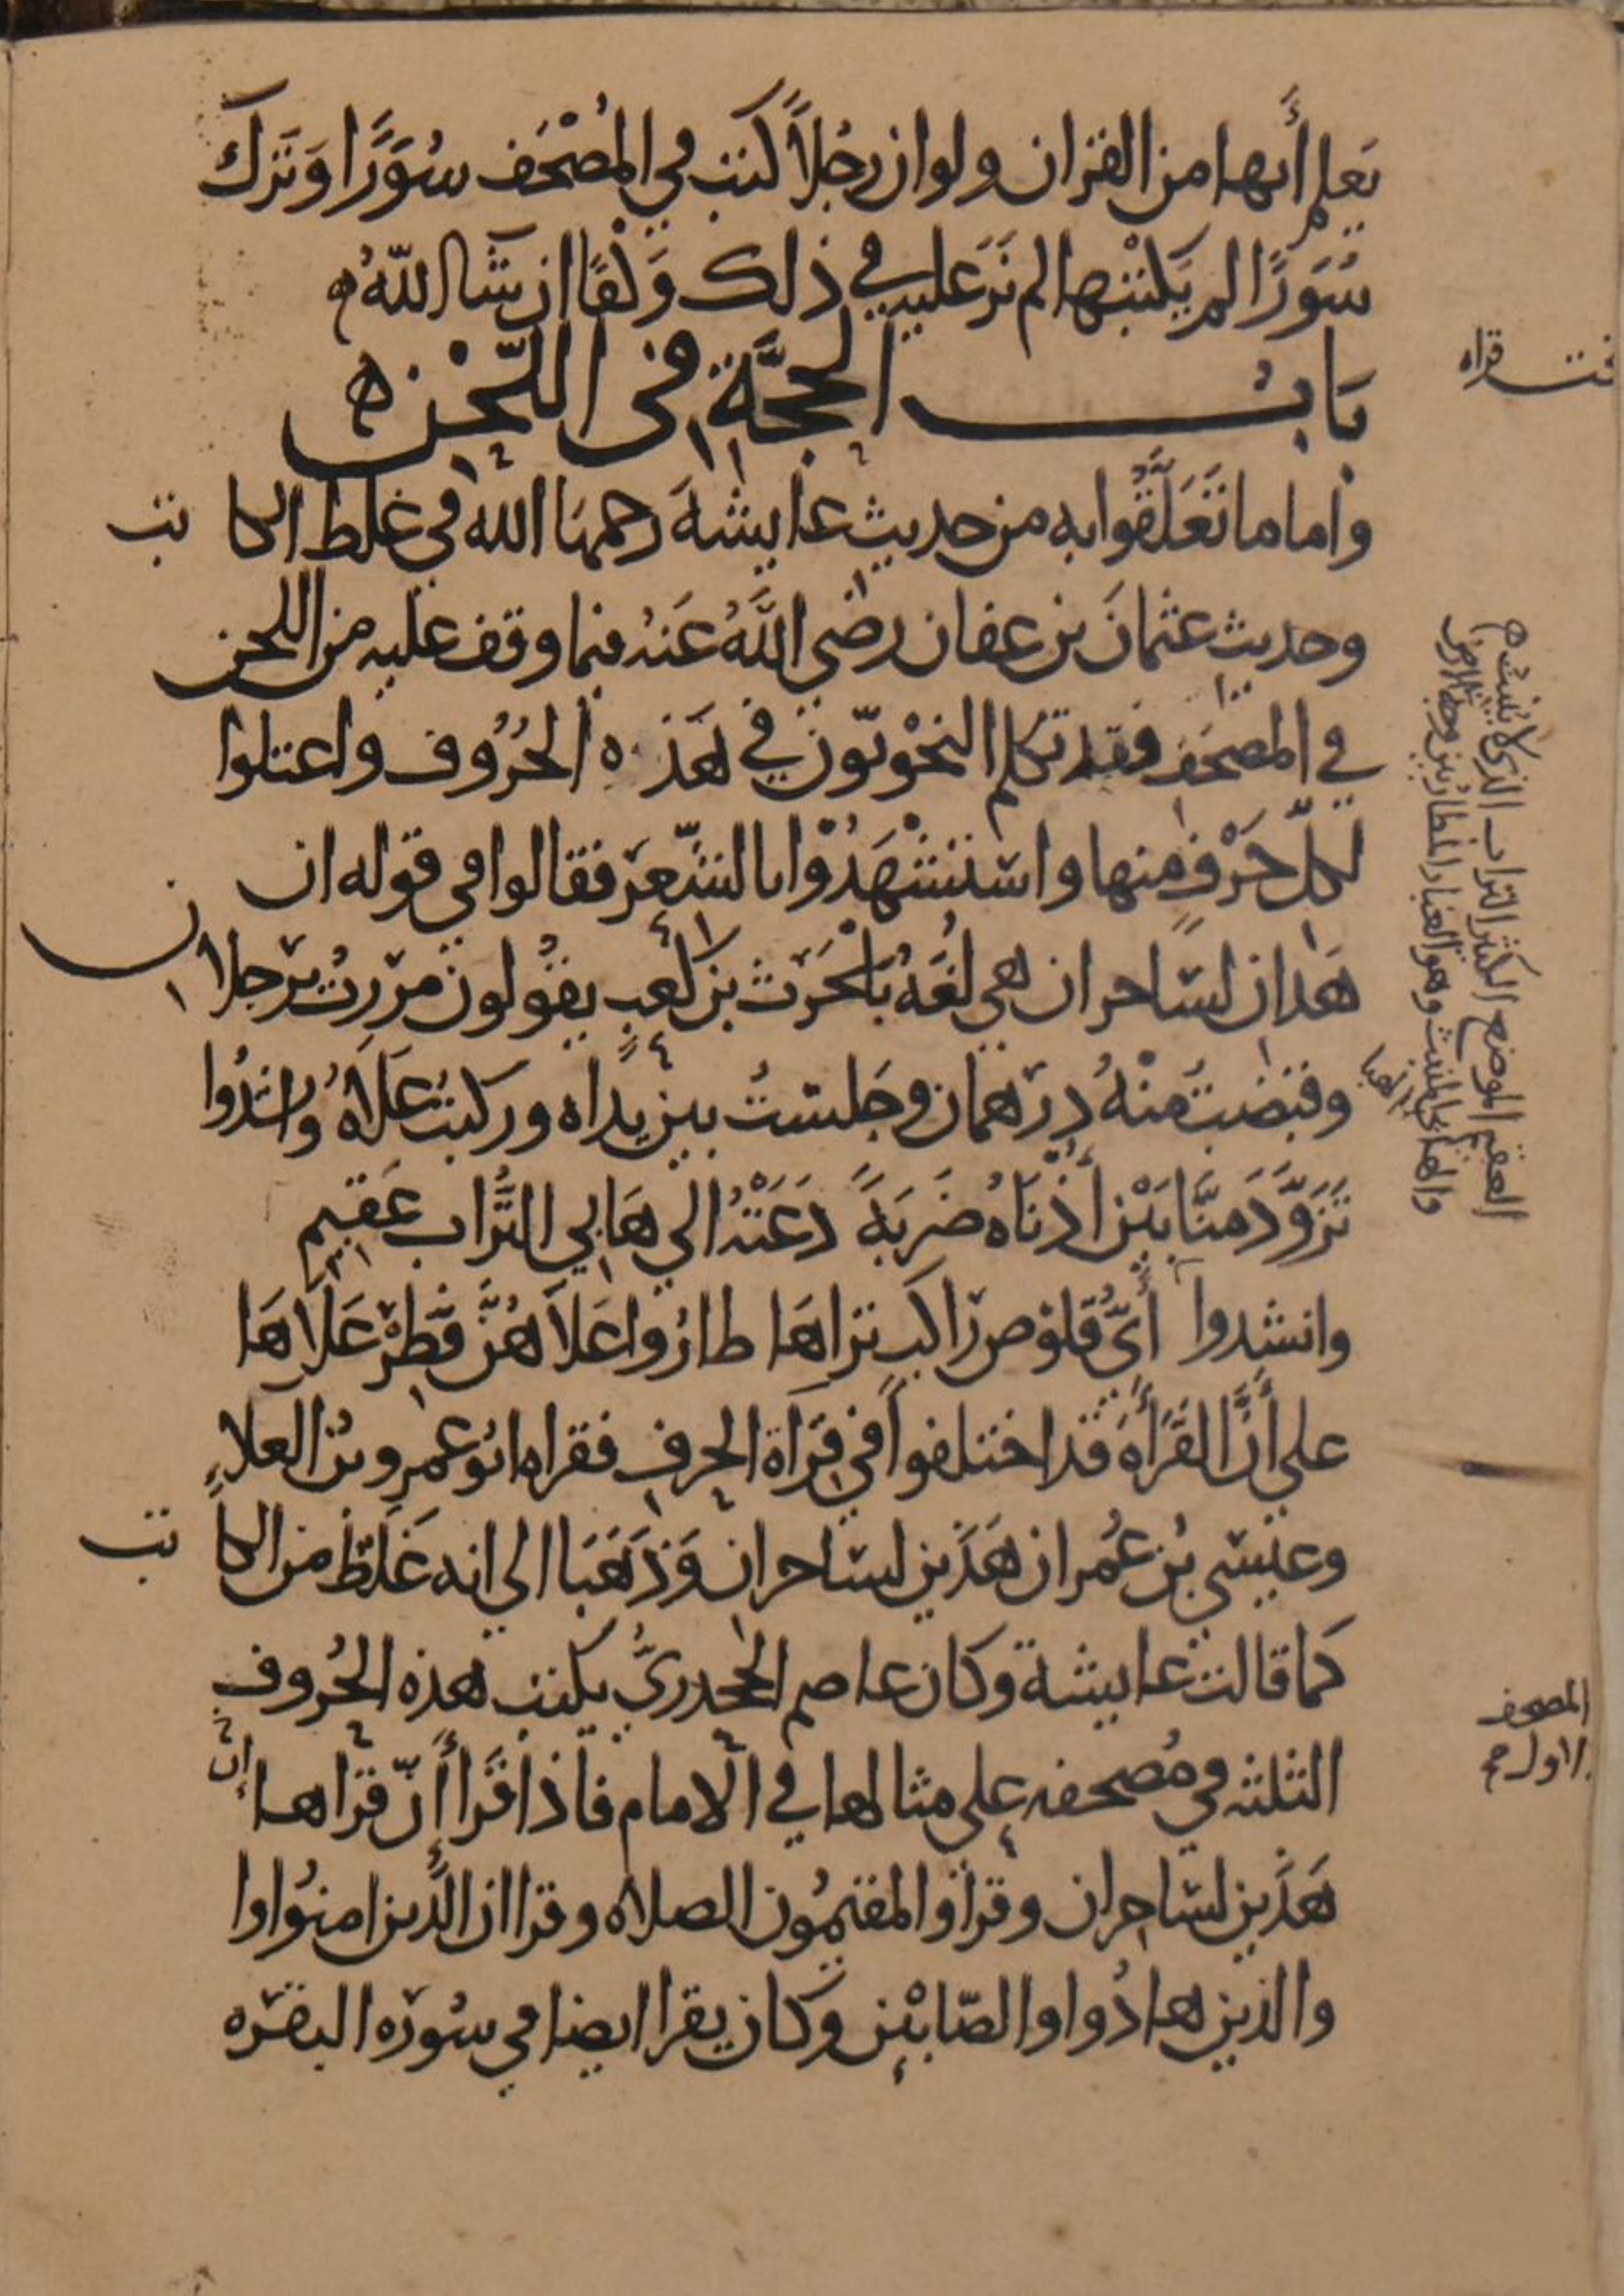 يَعلم أنها من القران ولو ان رجُلاً كتب في المُصْحَف سُوَرًا وَتَرَك
سُوَرًا لم يَكتبها لم نَر عليه في ذلك وَكْفًا ان شَا اللّهُ ه
بَابُ الحجَّةِ في اللَّحْن ه
واما ما تَعَلَّقُوا به من حديث عايشةَ رحمها الله في غلط الكاتب
وحديث عثمانَ بن عفان رضي اللَّهُ عَنهُ فيما وقف عليه من اللحن
في المصحَف فقد تكلم النحْويّون في هَذه الحُرُوف واعتلوا
لكلّ حَرْفٍ منها واسْتشْهَدُوْا بالشّعر فقالوا في قوله ان
هَذان لسَاحران هي لُغَةُ بَلْحَرث بن كعبٍ يقُولون مررتُ برجلان
وقبضتُ منْهُ درهمان وجَلستُ بين يداه وركبتُ عَلَاهُ وانشدُوا
تَزَوَّدَ منَّا بَيْن أُذْنَاهُ ضَربَةً دَعَتْهُ الي هَابي التُّراب عَقيم
وانشدوا أيُّ قلوْص راكب تراهَا طارُوا عَلاَهُنَّ فَطِرْ عَلَاهَا
علي أنَّ القَرَأَةَ قَد اختلفوا في قِرَاة الحرف فقراه ابُو عمرِو بنُ العلاءِ
وعيسَي بْن عُمر ان هَذَين لسَاحران وَذَهَبَا الي انه غَلطٌ من الكاتب
كما قالت عايشة وكان عاصم الجحدريُّ يكتب هذه الحُروف
الثلثه في مُصحفه علي مثالها في الامام فاذا قَرأ أنّ قراها إنّ
هَذَين لسَاحران وقرا والمقيمُون الصلاه وقرا ان الَّذين امنُوا وا
والذين هادُوا والصّابئين وكان يقرا ايضا في سُورَه البقرَه
قراه
العقيم الموضع الكثير التراب الذي لا ينبت ه
المصحف
الاول صح